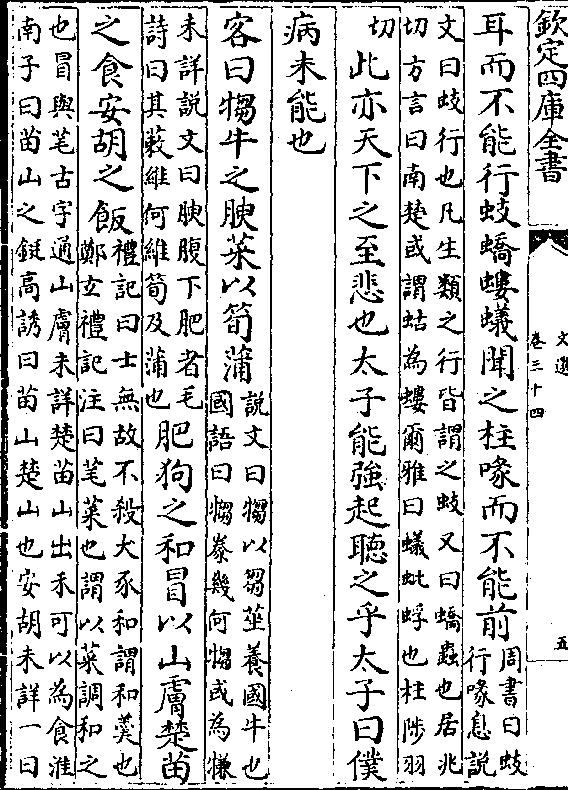 欽定四庫全書
文選
卷三十四
五
耳而不能行蚑蟜螻蟻聞之柱喙而不能前周書曰蚑
行喙息説
文曰蚑行也凡生類之行皆謂之蚑又曰蟜蟲也居兆
切方言曰南楚或謂蛄為螻爾雅曰蟻蚍蜉也柱陟羽
切此亦天下之至悲也太子能強起聽之乎太子曰僕
病未能也
客曰犓牛之腴菜以筍蒲說文曰犓以芻莝養國牛也
國語曰犓豢幾何犓或為㹇
未詳說文曰腴腹下肥者毛
詩曰其蔌維何維筍及蒲也肥狗之和冒以山膚楚苗
之食安胡之飯禮記曰士無故不殺犬豕和謂和羹也
鄭玄禮記注曰芼菜也謂以菜調和之
也冒與芼古字通山膚未詳楚苗山出禾可以為食淮
南子曰苗山之鋌高誘曰苗山楚山也安胡未詳一曰